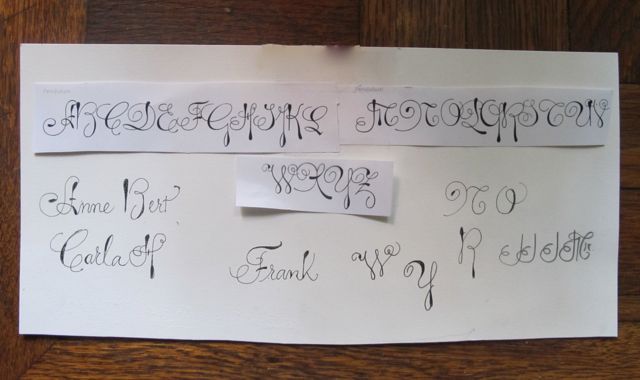 ABCDEFGHIJKL
MNOPQRSTUV
WXYZ
Anne Bert
N O
Carla H
Frank
W Y
R